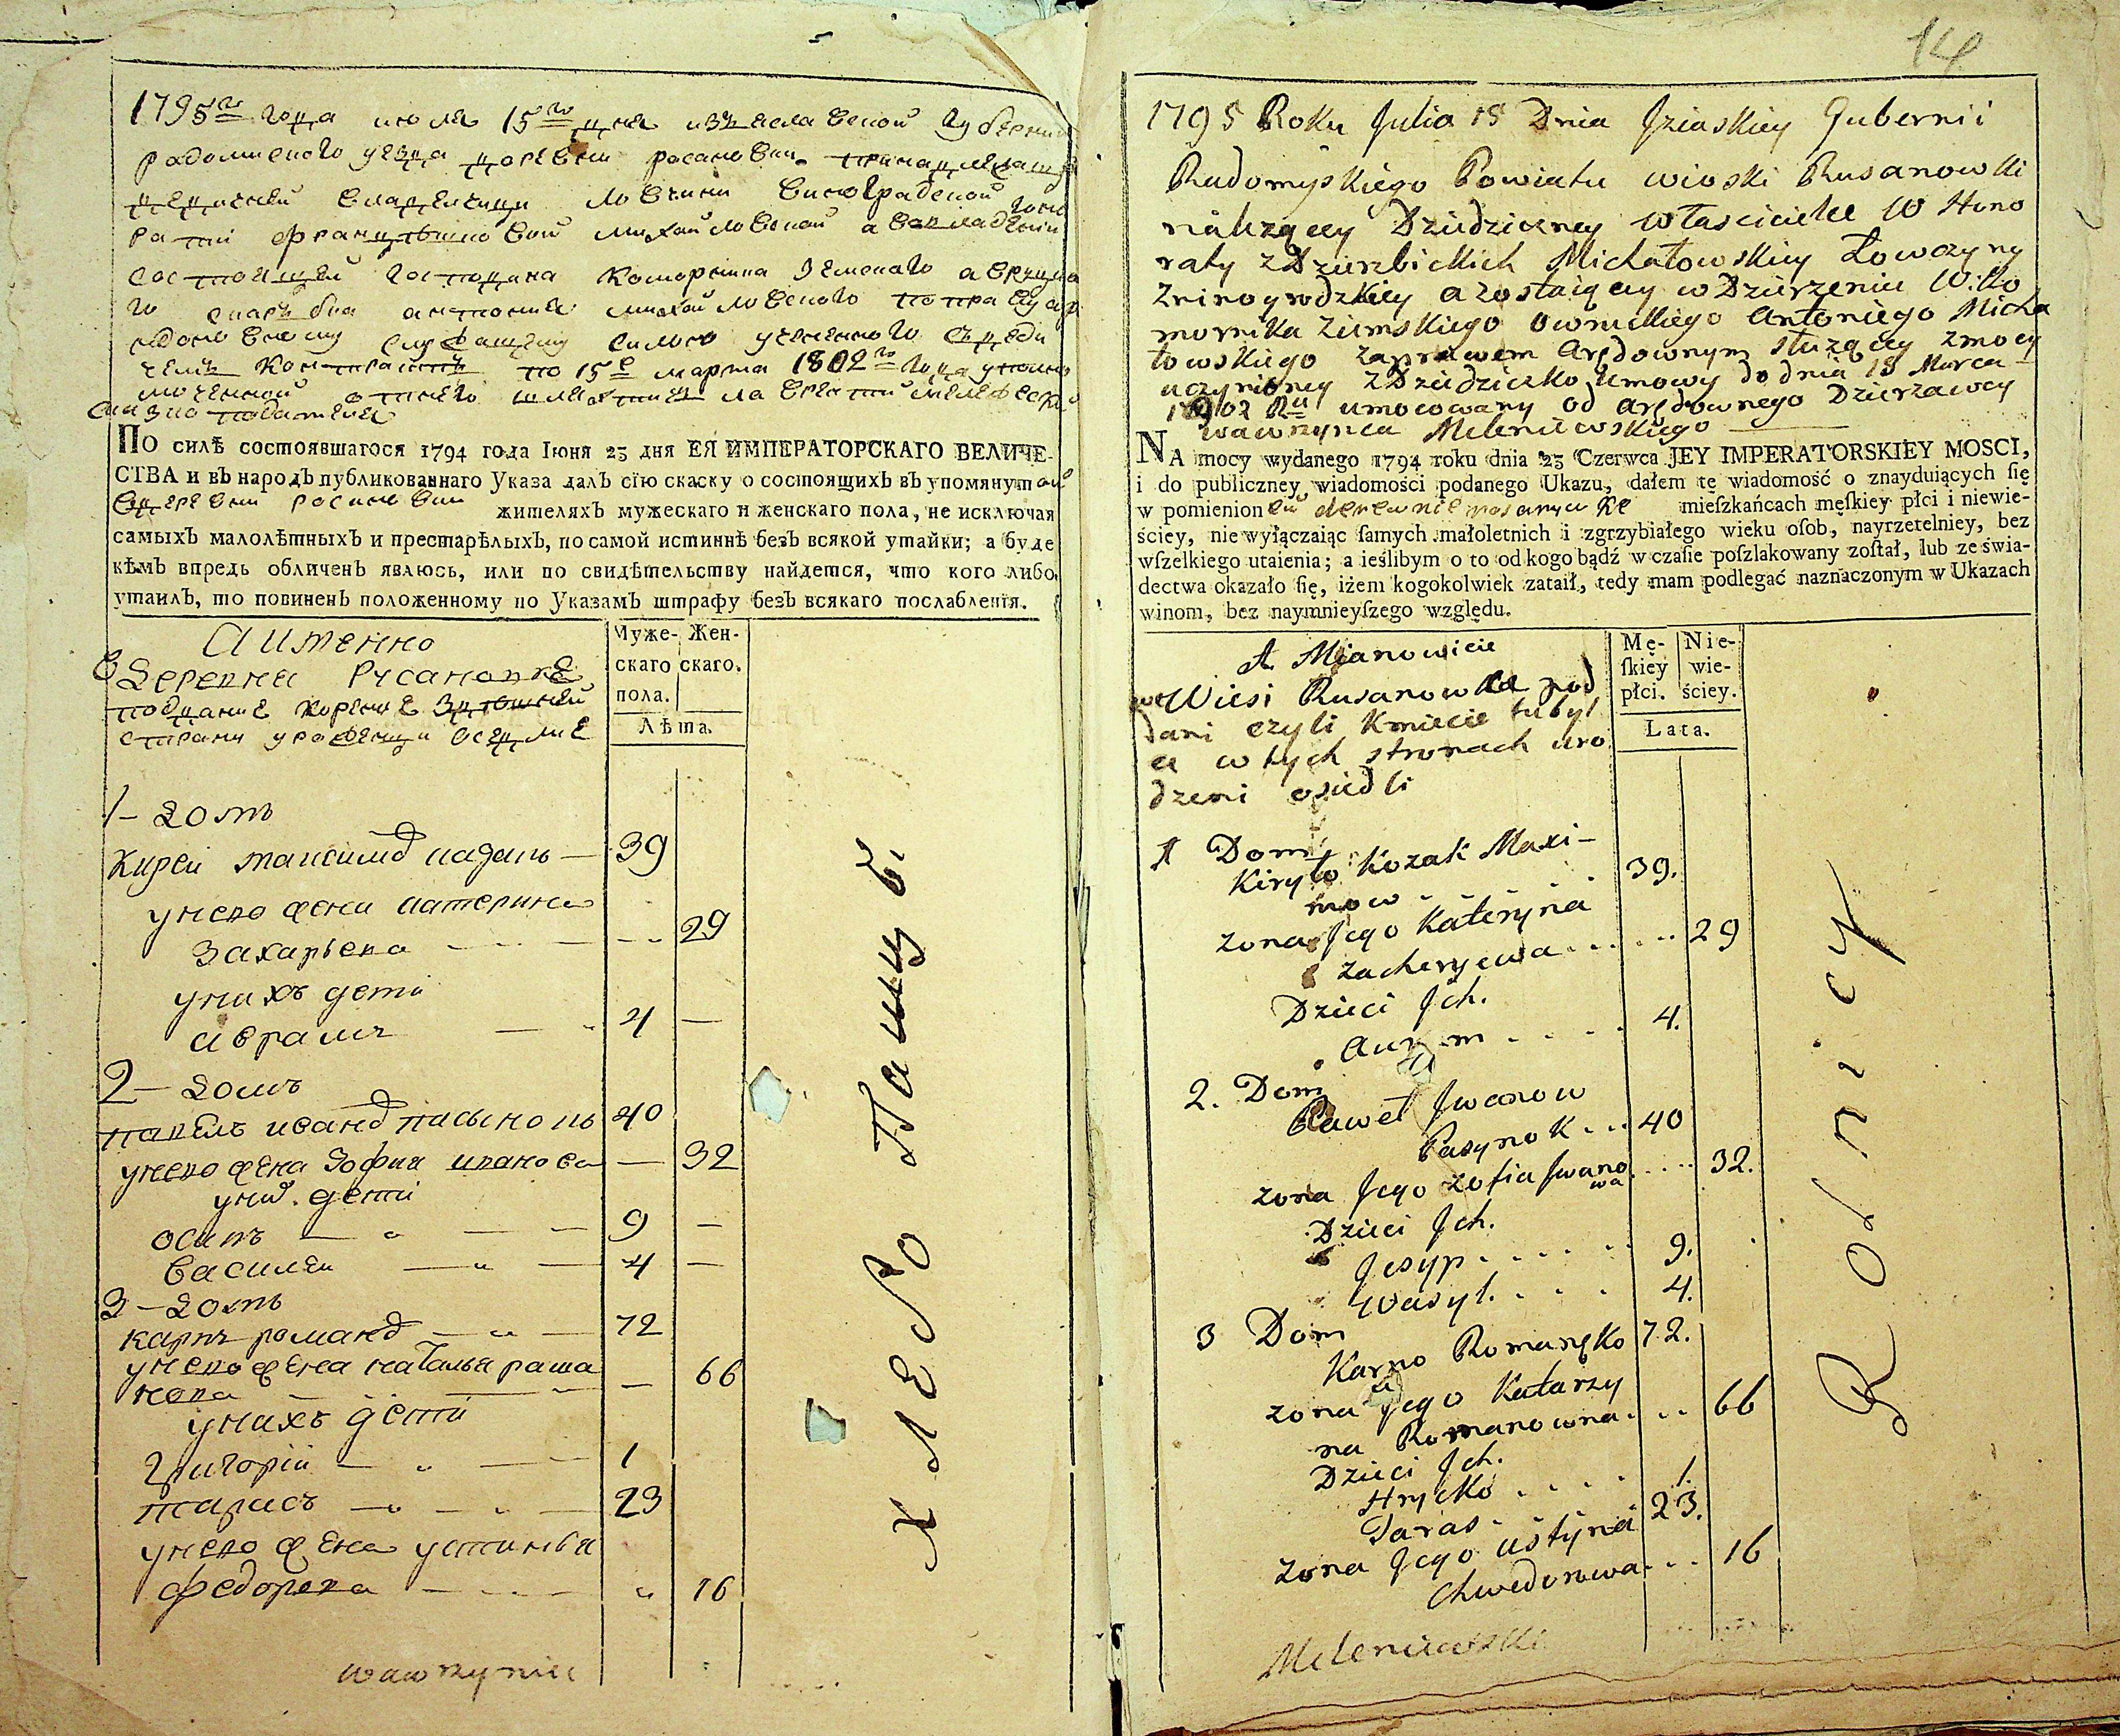 1795го года июля 15го дня изъяславской губернии
радомиского уезда деревни росановки принадлежаще
владелицы ловчини винограцкой гоно
рати францышковой михайловской
состоящей господина коморника земского овруцко
го антония михайловского по праву ар
довному служащему силою учиненного
контракту по 15е марта 1802го года
моченной
По силѣ состоявшагося 1794 года Іюня 23 дня ЕЯ ИМПЕРАТОРСКАГО ВЕЛИЧЕ-
СТВА и въ народъ публикованнаго Указа далъ сію скаску о состоящихъ въ упомянутой
деревни росановки жителяхъ мужескаго и женскаго пола, не исключая
самыхъ малолѣтныхъ и престарѣлыхъ, по самой истиннѣ безъ всякой утайки; а буде
кѣмъ впредь обличенъ явлюсь, или по свидѣтельству найдется, что кого либо
утаилъ, то повиненъ положенному по Указамъ штрафу безъ всякаго послабленія.
Аименно
в деревни Русановке
подание корение здешней
стирани уроженци оседлие
Муже- Жен-
скаго скаго.
пола.
Лѣта.
1 – домъ
Кирей максимов казакъ — 39
унево жена катерина
Захарьева 29
унихъ дети
аврамъ 4 —
2 – домъ
павелъ иванов пасынокъ 40
унево жена Зофия иванова — 32
уних. дети
осипъ 9 —
василей 4 —
3 – домъ
карпъ романов 72
унево жена наталья рома
нова — 66
унихъ дети
григорій 1
тарасъ 23
унево жена устинья
федорева 16
хлебо Пашцы
wawrzyniec
14
1795 Roku Julia 15 Dnia Jziaskiey Gubernii
Radomyskiego Powiatu wioski Rusanowki
należącey Dziedziczney właścicielce W Hono
raty z Dzierzbickich Michałowskiey Łowczyny
Zwinogrodzkiey a zostaiącey w Dzierżeniu W: Ko
mornika Ziemskiego Owruckiego Antoniego Micha
łowskiego zaprawem Arędownym służącey zmocy
uczynioney z Dziedziczko Umowy do dnia 15 Marca
1802 Ru umocowany od Arędownego Dzierzawcy
Wawrzynca Meleniewskiego
NA mocy wydanego 1794 roku dnia 23 Czerwca JEY IMPERATORSKIEY MOSCI,
i do publiczney wiadomości podanego Ukazu, dałem tę wiadomość o znayduiących ſię
w pomienioney derewnie rosanowke mieſzkańcach męſkiey płci i niewie-
ściey, nie wyłączaiąc ſamych małoletnich i zgrzybiałego wieku oſob, nayrzetelniey, bez
wſzelkiego utaienia; a ieślibym o to od kogo bądź w czaſie poſzlakowany zoſtał, lub ze świa-
dectwa okazało ſię, iżem kogokolwiek zataił, tedy mam podlegać naznaczonym w Ukazach
winom, bez naymnieyſzego względu.
A Mianowicie
we Wiesi Rusanowka pod
dani czyli Kmiecie tubyl
cy w tych stronach uro
dzeni osiedli
Mę- Nie-
ſkiey wie-
płci. ściey.
Lata.
1 Dom
Kiryło Kozak Maxi-
mow 39.
zona Jego Kateryna
zacheryewa 29
Dzieci Jch.
Awram 4.
2. Dom
Paweł Jwanow
Pasynok 40
zona Jego zofia Jwano
wa 32.
Dzieci Jch.
Jesyp 9.
Wasyl. 4.
3 Dom
Karpo Romanęko 72.
zona Jego Katarzy
na Romanowna. 66
Dzieci Jch.
Hrycko 1.
Taras 23.
zona Jego ustyna
Chwedorowa 16
Rolnicy
Meleniewski